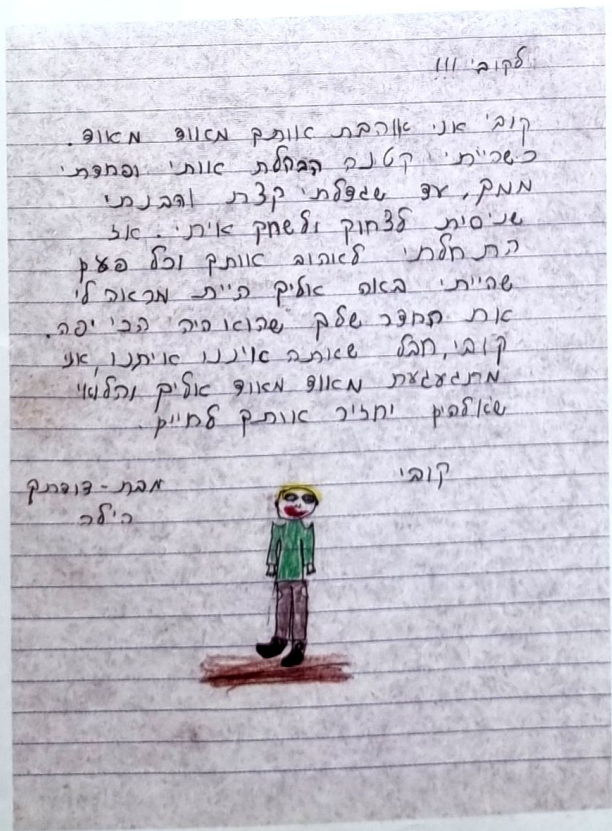 לקובי !!!
קובי אני אוהבת אותך מאוד מאוד.
כשהייתי קטנה הבהלת אותי ופחדתי
ממך, עד שגדלתי קצת והבנתי
שניסית לצחוק ולשחק איתי. אז
התחלתי לאהוב אותך וכל פעם
שהייתי באה אליך היית מראה לי
את החדר שלך שהוא היה הכי יפה.
קובי, חבל שאתה איננו איתנו, אני
מתגעגעת מאוד מאוד אליך והלוואי
שאלהים יחזיר אותך לחיים.
קובי
מבת-דודתך
הילה